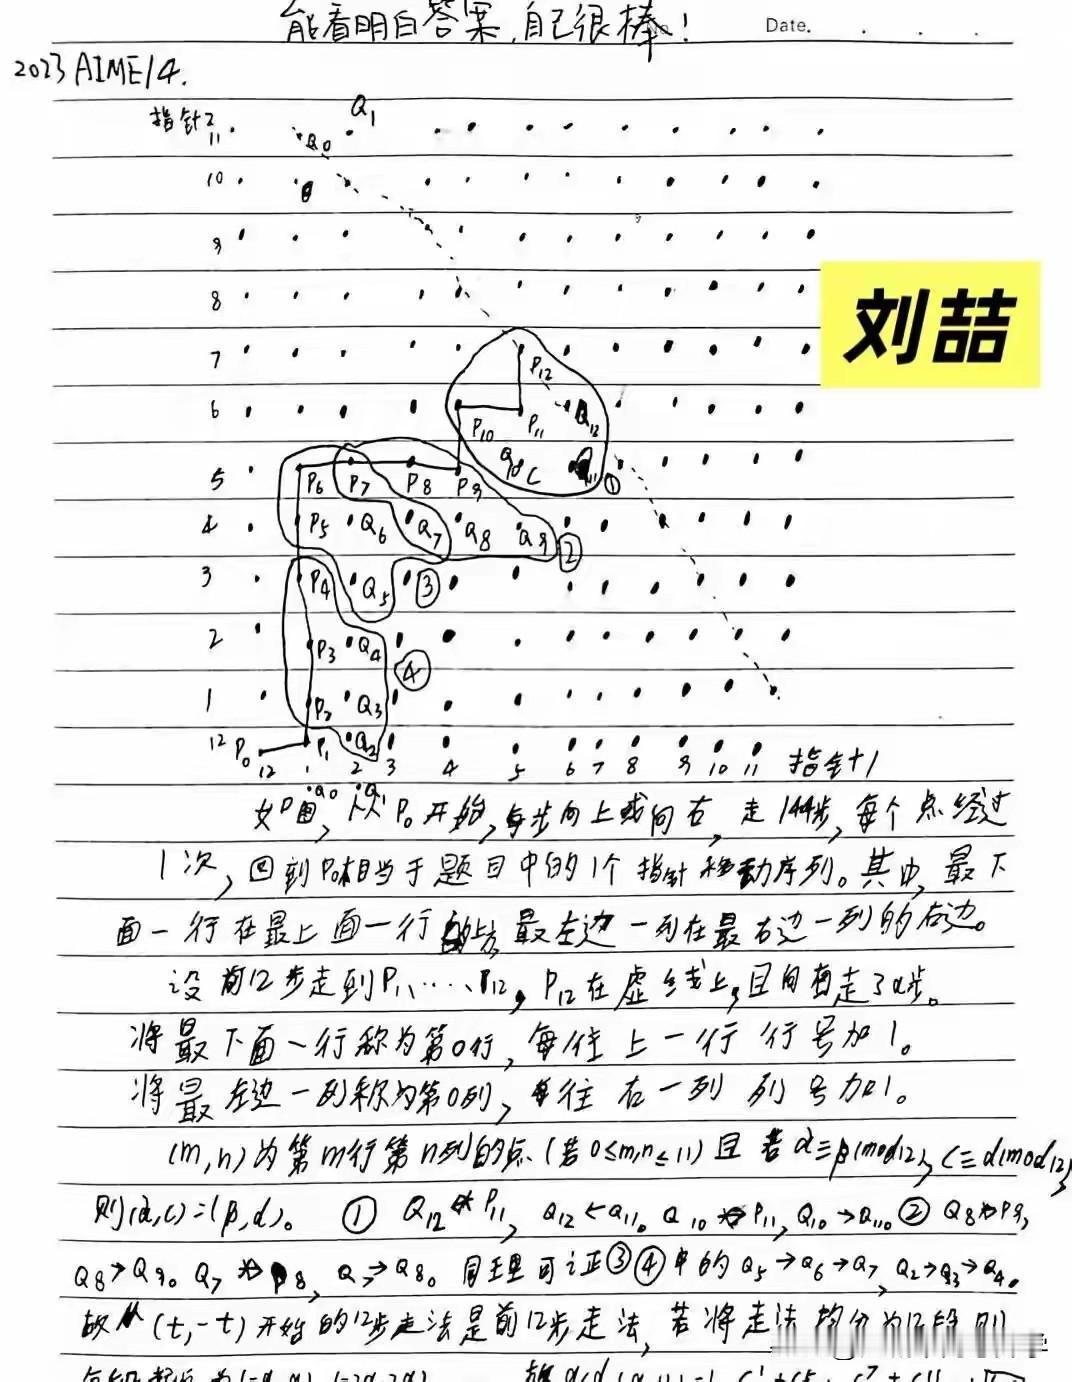 能看明白答案,自己很棒!
Date.
2023 AIME14.
指针2
11 Q0 Q1
10
9
8
刘喆
7 P12
6 P10 P11 Q12
5 P6 P7 P8 P9 Q11 ①
4 P5 Q6 Q7 Q8 Q9 ②
3 P4 Q5 ③
2 P3 Q4 ④
1 P2 Q3
12 P0 P1 Q2
12 1 2 3 4 5 6 7 8 9 10 11 指针1
如图,从P0开始,每步向上或向右,走144步,每个点经过
1次,回到P0相当于题目中的1个指针移动序列。其中,最下
面一行在最上面一行的上方,最左边一列在最右边一列的右边。
设前12步走到P1,…,P12,P12在虚线上,且向右走了d步。
将最下面一行称为第0行,每往上一行行号加1。
将最左边一列称为第0列,每往右一列列号加1。
(m,n)为第m行第n列的点(若0≤m,n≤11)且若a≡β(mod12),c≡d(mod12),
则(a,c)=(β,d)。 ① Q12 P11, Q12←Q11。Q10 P11,Q10→Q11。② Q8 P9,
Q8→Q9。Q7 P8, Q7→Q8。同理可证③④中的Q5→Q6→Q7,Q2→Q3→Q4。
故从(t,-t)开始的12步走法是前12步走法,若将走法均分为12段,则